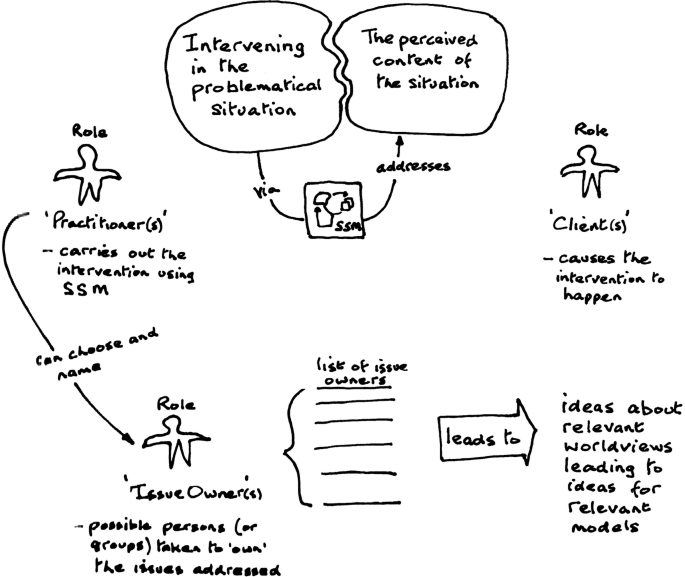 Intervening
in the
problematical
situation
The perceived
content of
the situation
via
addresses
SSM
Role
'Practitioner(s)'
- carries out the
intervention using
SSM
Role
'Client(s)'
- causes the
intervention to
happen
can choose and
name
Role
'Issue Owner(s)'
- possible persons (or
groups) taken to 'own'
the issues addressed
list of issue
owners
leads to
ideas about
relevant
worldviews
leading to
ideas for
relevant
models